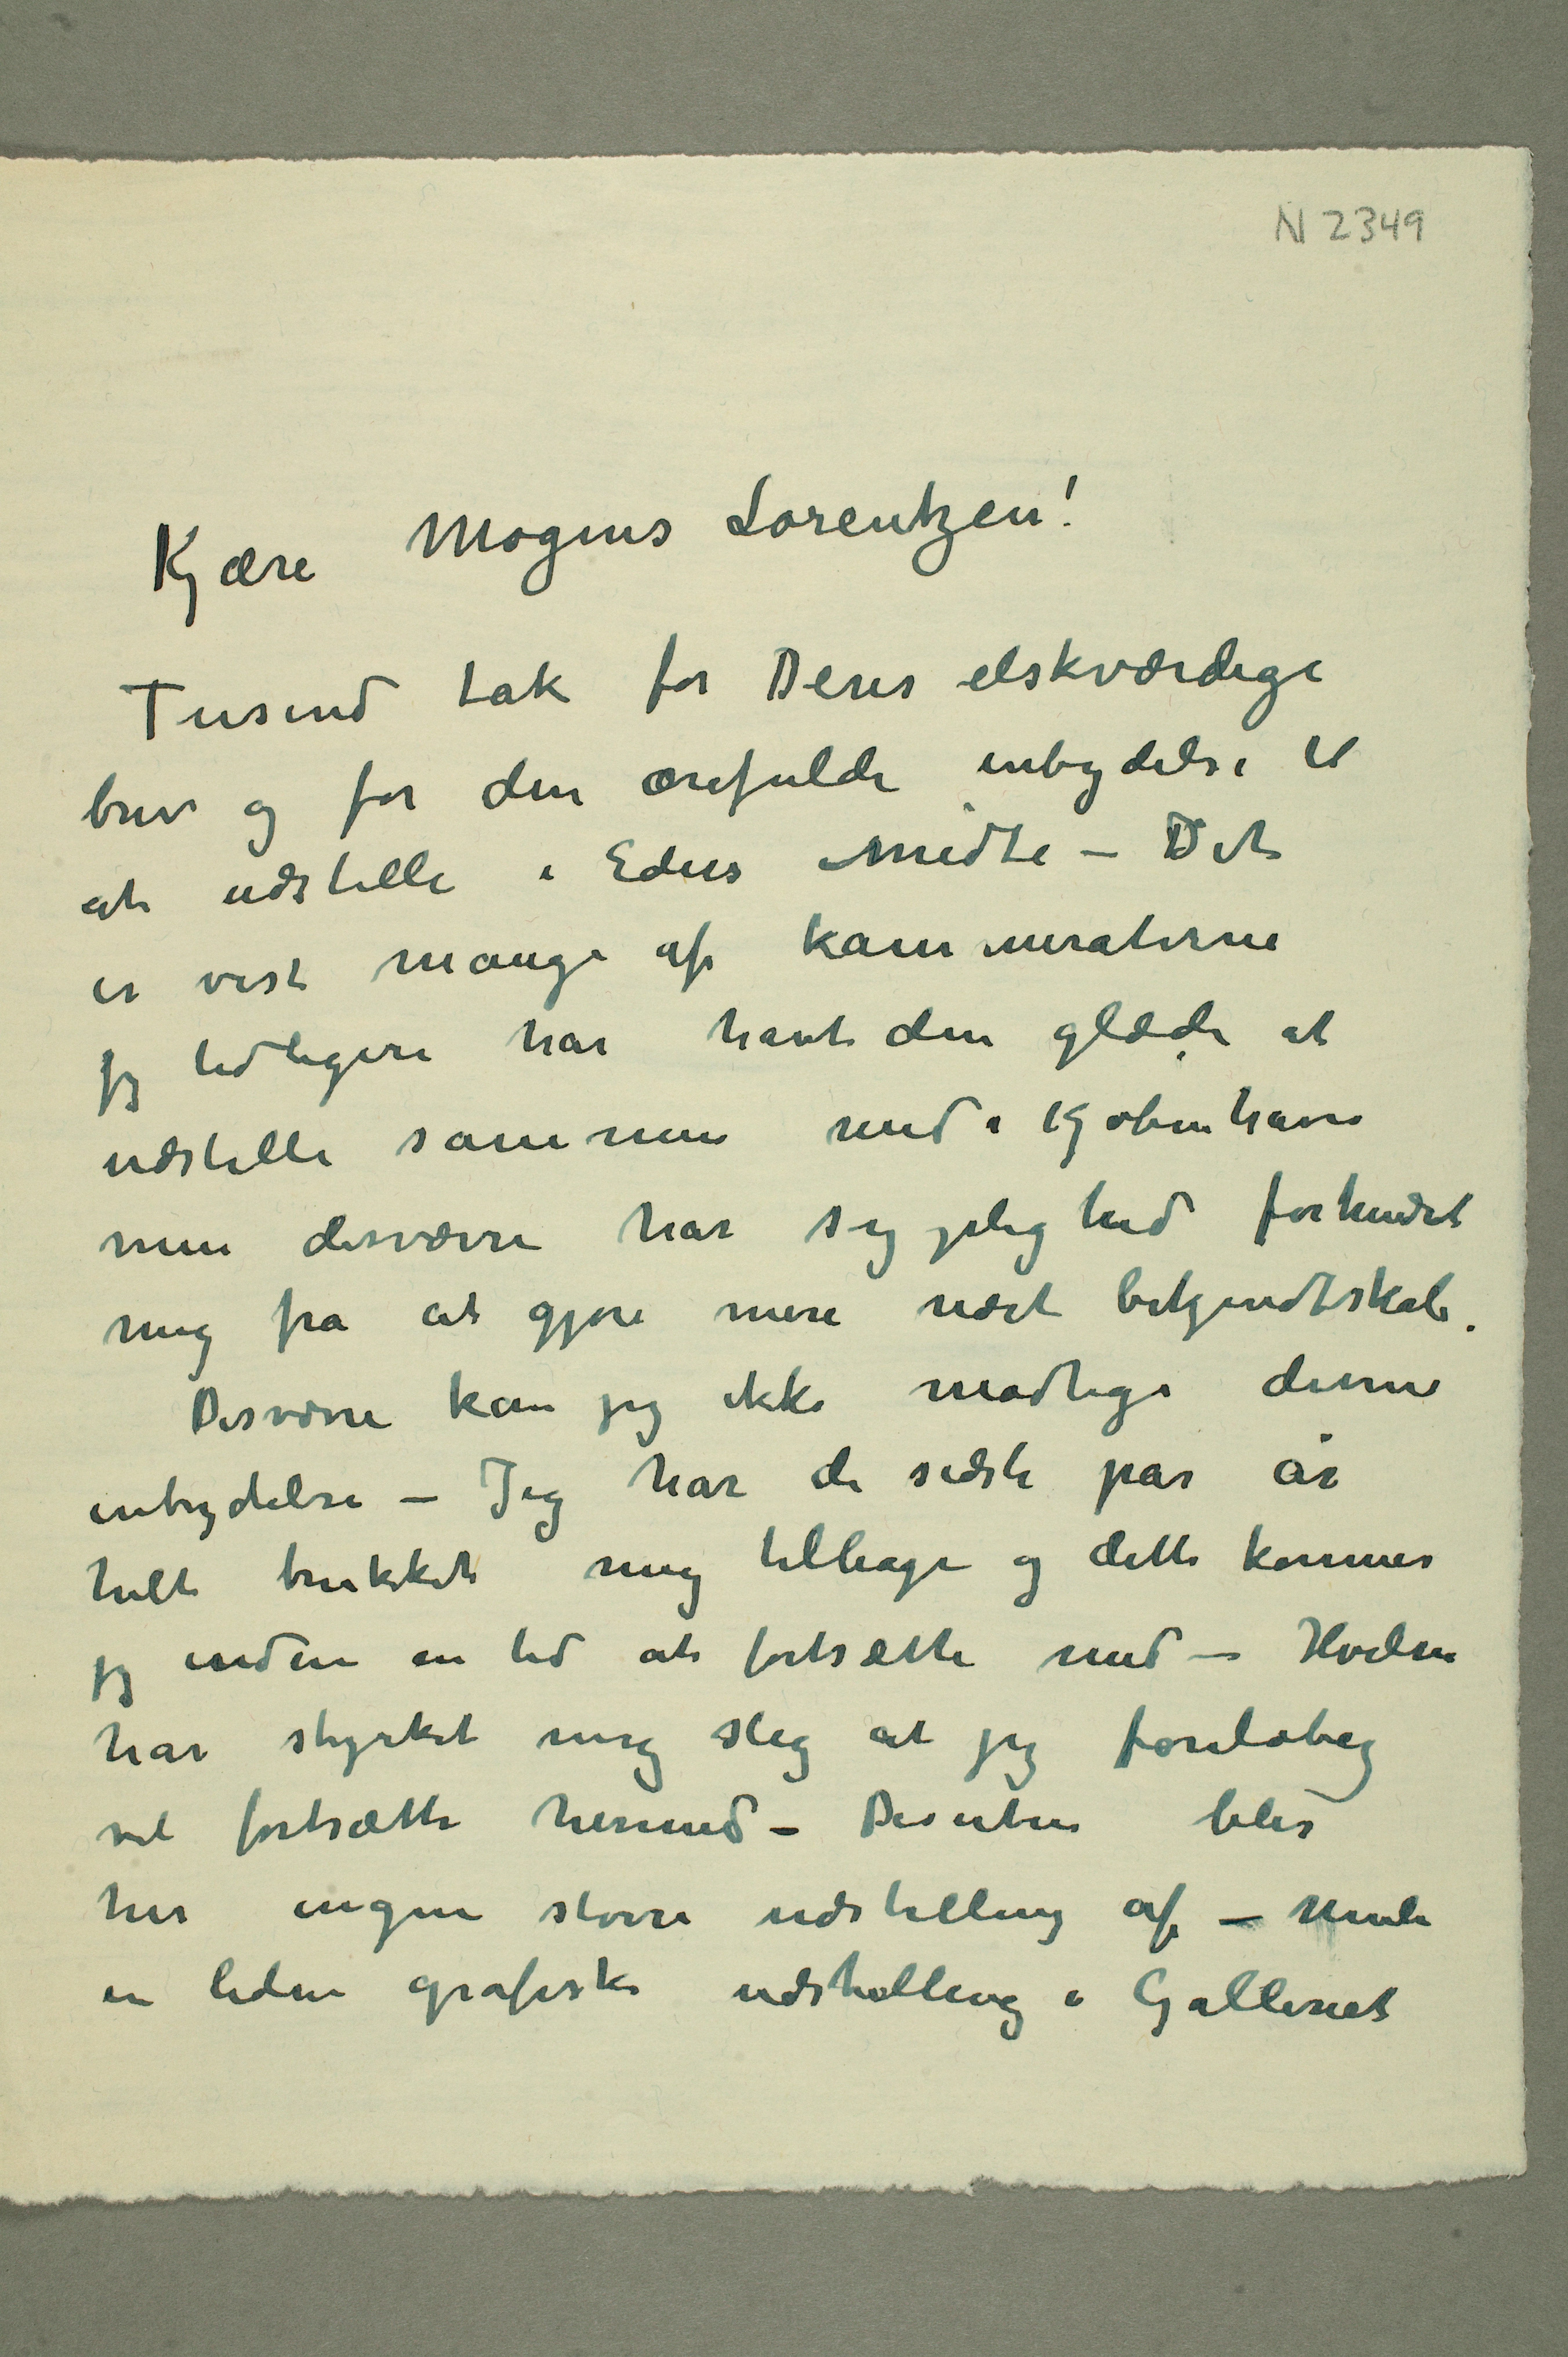 N 2349
Kjære Mogens Lorentzen!
Tusind tak for Deres elskværdige
brev og for den ærefulde inbydelse til
at udstille i Eders Midte – Det
er vist mange af kammeraterne
jeg tidligere har havt den glæde at
udstille sammen med i Kjøbenhavn
men desværre har sygelighed forhindret
mig fra at gjøre mere nært bekjendtskab.
Desværre kan jeg ikke modtage denne
inbydelse – Jeg har de sidste par år
helt trukket mig tilbage og dette kommer
jeg enden en tid at fortsætte med – Hvilen
har styrket mig slig at jeg foreløbig
vil fortsætte hermed – Desuten blir
her ingen større udstilling af –
en liden grafisk udstilling i Galleriet